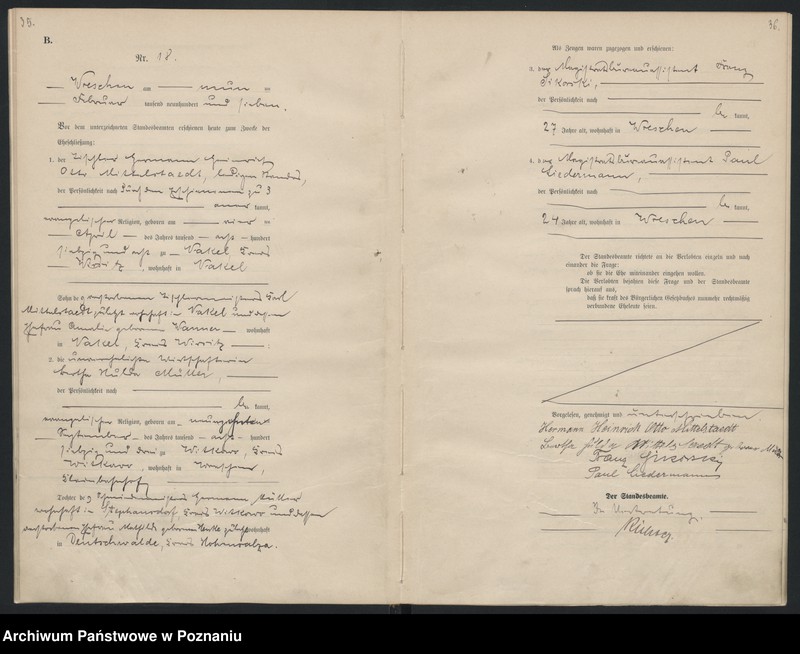 35.
B.
Nr. 18.
Wreschen am neun ten
Februar tausend neunhundert und sieben.
Vor dem unterzeichneten Standesbeamten erschienen heute zum Zwecke der
Eheschließung:
1. der Tischler Hermann Heinrich
Otto Mittelstaedt, ledigen Standes,
der Persönlichkeit nach
kannt,
evangelischer Religion, geboren am
April des Jahres tausend acht hundert
siebzig und acht zu Nakel, Kreis
Wirsitz, wohnhaft in Nakel
Sohn des verstorbenen Tischlermeisters Karl
Mittelstaedt, zuletzt wohnhaft in Nakel und dessen
Ehefrau Amalie geborenen Wanner wohnhaft
in Nakel, Kreis Wirsitz
2. die unverehelichte Wirtschafterin
Bertha Hulda Müller,
der Persönlichkeit nach
be kannt,
evangelischer Religion, geboren am
September des Jahres tausend acht hundert
siebzig und drei zu Witkowo, Kreis
Witkowo, wohnhaft in Wreschen,
Kleinbahnhof
Tochter des Hermann Müller
wohnhaft in Stephansdorf, Kreis Witkowo und dessen
verstorbenen Ehefrau Mathilde geborenen zuletzt wohnhaft
in Deutschwalde, Kreis Hohensalza.
36.
Als Zeugen waren zugezogen und erschienen:
3. der Magistratsbureauassistent Franz
Sikorski,
der Persönlichkeit nach
be kannt,
27 Jahre alt, wohnhaft in Wreschen
4. der Magistratsbureauassistent Paul
Liedermann,
der Persönlichkeit nach
be kannt,
24 Jahre alt, wohnhaft in Wreschen
Der Standesbeamte richtete an die Verlobten einzeln und nach
einander die Frage:
ob sie die Ehe miteinander eingehen wollen.
Die Verlobten bejahten diese Frage und der Standesbeamte
sprach hierauf aus,
daß sie kraft des Bürgerlichen Gesetzbuches nunmehr rechtmäßig
verbundene Eheleute seien.
Vorgelesen, genehmigt und unterschrieben.
Hermann Heinrich Otto Mittelstaedt
Bertha Hulda Mittelstaedt
Franz
Paul Liedermann
Der Standesbeamte.
In Vertretung.
Archiwum Państwowe w Poznaniu